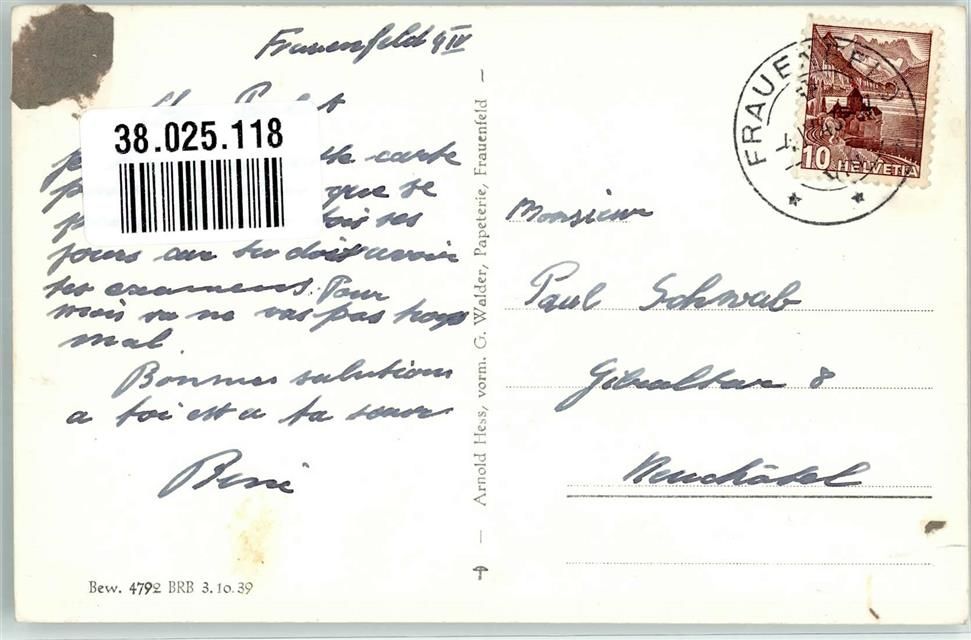 Frauenfeld 9 IV
38.025.118
carte
que te
ses
jours car tu dois avoir
tes examens. Pour
moi va ne vas pas trop
mal
Bonnes salutions
a toi est a ta soeur
René
Bew. 4792 BRB 3.10.39
— Arnold Hess, vorm. G. Walder, Papeterie, Frauenfeld —
FRAUENFELD
10 HELVETIA
Monsieur
Paul Schwab
Gibraltar 8
Neuchâtel